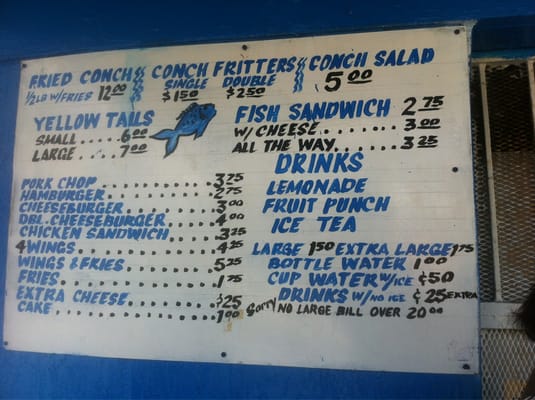 FRIED CONCH
1/2 LB W/FRIES 12.00
CONCH FRITTERS
SINGLE DOUBLE
$1.50 $2.50
CONCH SALAD
5.00
YELLOW TAILS
SMALL.....6.00
LARGE.....7.00
FISH SANDWICH 2.75
W/CHEESE..........3.00
ALL THE WAY........3.25
PORK CHOP............3.75
HAMBURGER............2.75
CHEESEBURGER.........3.00
DBL CHEESEBURGER.....4.00
CHICKEN SANDWICH.....3.25
4 WINGS..............4.25
WINGS & FRIES........5.25
FRIES................1.75
EXTRA CHEESE.........$25
CAKE.................1.00
DRINKS
LEMONADE
FRUIT PUNCH
ICE TEA
LARGE 1.50 EXTRA LARGE 1.75
BOTTLE WATER 1.00
CUP WATER W/ICE ¢50
DRINKS W/NO ICE ¢25 EXTRA
Sorry NO LARGE BILL OVER 20.00